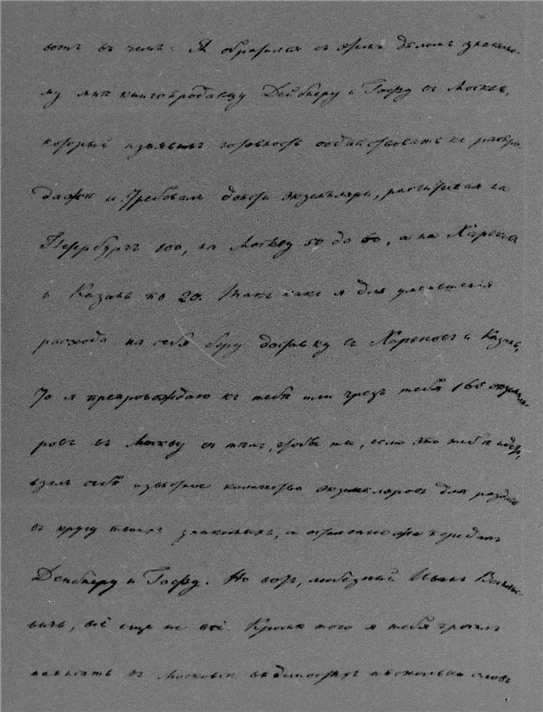 вотъ въ чемъ: Я обратился съ этимъ дѣломъ знакомо-
му мнѣ книгопродавцу Дейбнеру и Гоферу въ Москвѣ,
который изъявилъ готовность содѣйствовать къ распро-
дажѣ и требовалъ экземпляры, расчитывая на
Петербургъ 100, на Москву 50 до 60, а на Харьковъ
и Казань по 20. Такъ какъ я для уменьшенія
расхода на себя беру доставку въ Харьковъ и Казань,
то я препровождаю къ тебѣ или чрезъ тебя 160 экземпля-
ровъ въ Москву съ тѣмъ, чтобы ты, если это тебѣ
взялъ себѣ извѣстное количество экземпляровъ для раздачи
въ кругу твоихъ знакомыхъ, а остальные же передалъ
Дейбнеру и Гоферу. Но вотъ, любезный Иванъ Василье-
вичъ, всё еще не всё. Кромѣ того я тебя
написать въ Московскихъ вѣдомостяхъ нѣсколько словъ